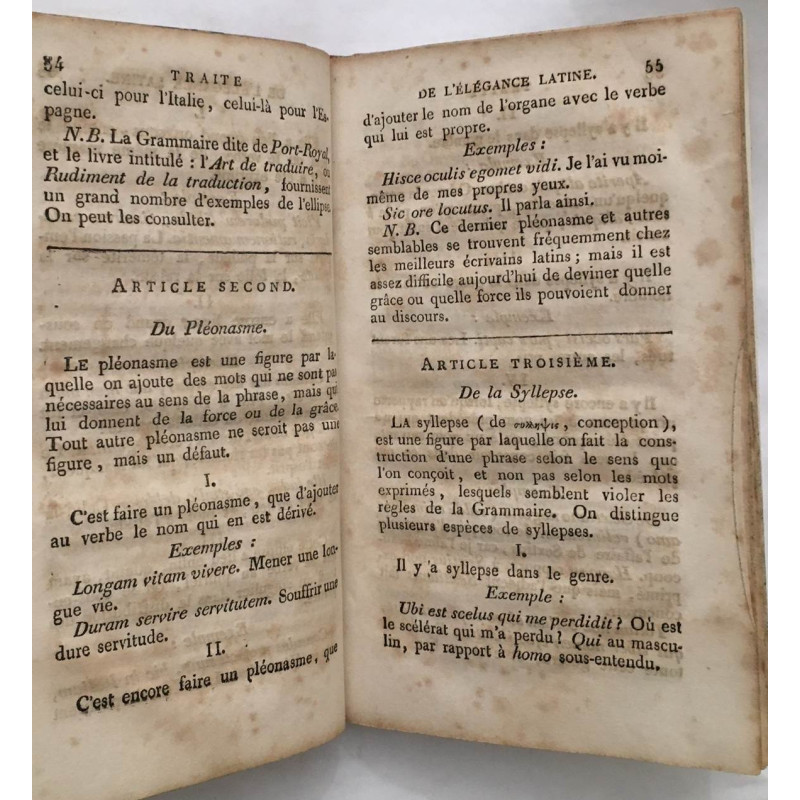 54
TRAITE
celui-ci pour l'Italie, celui-là pour l'Es-
pagne.
N.B. La Grammaire dite de Port-Royal,
et le livre intitulé : l'Art de traduire, ou
Rudiment de la traduction, fournissent
un grand nombre d'exemples de l'ellipse.
On peut les consulter.
ARTICLE SECOND.
Du Pléonasme.
LE pléonasme est une figure par la-
quelle on ajoute des mots qui ne sont pas
nécessaires au sens de la phrase, mais qui
lui donnent de la force ou de la grâce.
Tout autre pléonasme ne seroit pas une
figure, mais un défaut.
I.
C'est faire un pléonasme, que d'ajouter
au verbe le nom qui en est dérivé.
Exemples :
Longam vitam vivere. Mener une lon-
gue vie.
Duram servire servitutem. Souffrir une
dure servitude.
II.
C'est encore faire un pléonasme, que
DE L'ÉLÉGANCE LATINE.
55
d'ajouter le nom de l'organe avec le verbe
qui lui est propre.
Exemples :
Hisce oculis egomet vidi. Je l'ai vu moi-
même de mes propres yeux.
Sic ore locutus. Il parla ainsi.
N.B. Ce dernier pléonasme et autres
semblables se trouvent fréquemment chez
les meilleurs écrivains latins ; mais il est
assez difficile aujourd'hui de deviner quelle
grâce ou quelle force ils pouvoient donner
au discours.
ARTICLE TROISIÈME.
De la Syllepse.
LA syllepse ( de συλληψις, conception ),
est une figure par laquelle on fait la cons-
truction d'une phrase selon le sens que
l'on conçoit, et non pas selon les mots
exprimés, lesquels semblent violer les
règles de la Grammaire. On distingue
plusieurs espèces de syllepses.
I.
Il y a syllepse dans le genre.
Exemple :
Ubi est scelus qui me perdidit ? Où est
le scélérat qui m'a perdu ? Qui au mascu-
lin, par rapport à homo sous-entendu.